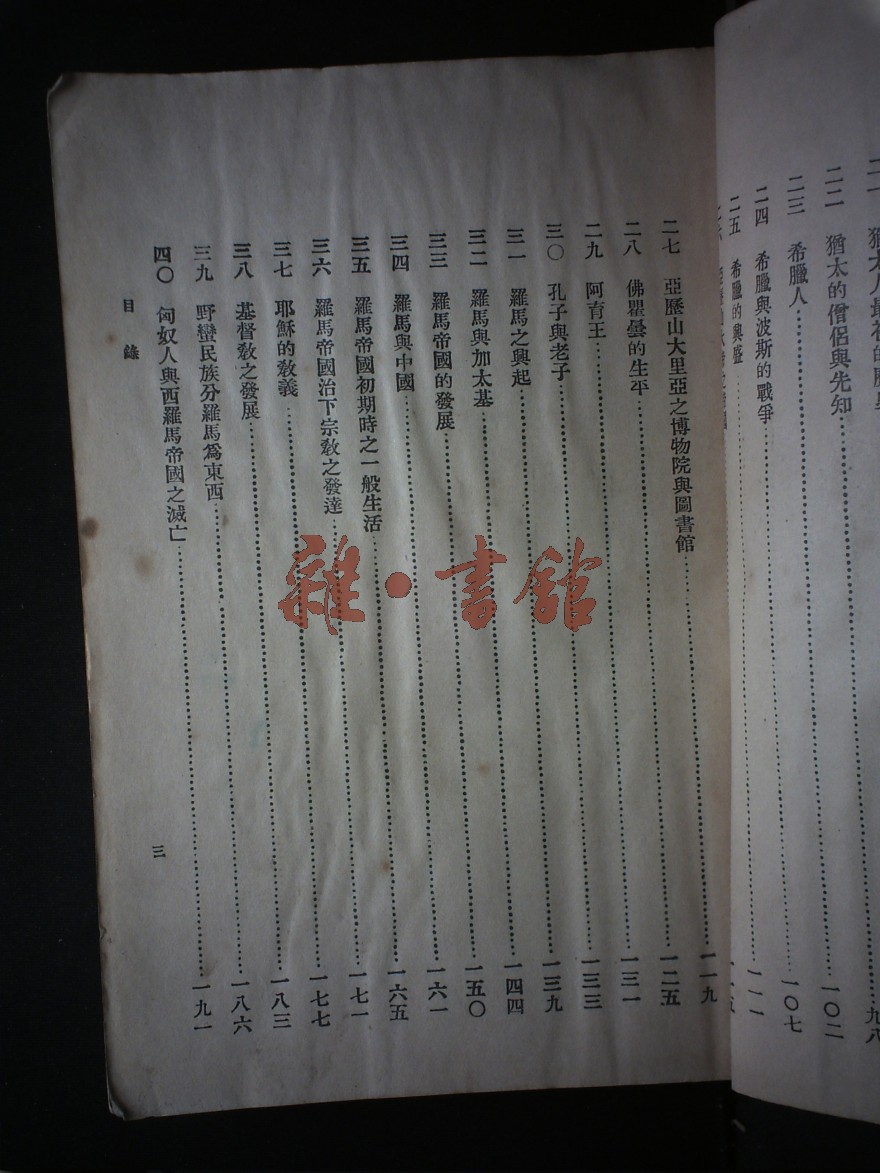 二二 猶太的僧侶與先知……一〇二
二三 希臘人……一〇七
二四 希臘與波斯的戰爭……一一一
二五 希臘的興盛……一一五
二七 亞歷山大里亞之博物院與圖書館……一一九
二八 佛瞿曇的生平……一二五
二九 阿育王……一三一
三〇 孔子與老子……一三三
三一 羅馬之興起……一三九
三二 羅馬與加太基……一四四
三三 羅馬帝國的發展……一五〇
三四 羅馬與中國……一六一
三五 羅馬帝國初期時之一般生活……一六五
三六 羅馬帝國治下宗教之發達……一七一
三七 耶穌的教義……一七七
三八 基督教之發展……一八三
三九 野蠻民族分羅馬為東西……一八六
四〇 匈奴人與西羅馬帝國之滅亡……一九一
目錄
三
雜·書館